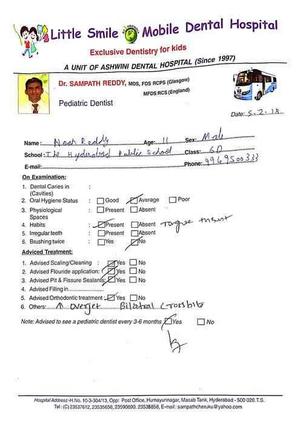 Little Smile Mobile Dental Hospital
Exclusive Dentistry for kids
A UNIT OF ASHWINI DENTAL HOSPITAL (Since 1997)
Dr. SAMPATH REDDY, MDS, FDS RCPS (Glasgow)
MFDS RCS (England)
Pediatric Dentist
Date: 5.2.18
Name: Noor Reddy Age: 11 Sex: Male
School: The Hyderabad Public School Class: 6D
E-mail: Phone: 9969500333
On Examination:
1. Dental Caries in (Cavities) :
2. Oral Hygiene Status : Good Average Poor
3. Physiological Spaces : Present Absent
4. Habits : Present Absent Tongue thrust
5. Irregular teeth : Present Absent
6. Bushing twice : Yes No
Adviced Treatment:
1. Advised Scaling/Cleaning : Yes No
2. Advised Flouride application: Yes No
3. Advised Pit & Fissure Sealants: Yes No
4. Advised Filling in
5. Advised Orthodontic treatment: Yes No
6. Others: ↑ overjet Bilateral Crossbite
Note: Advised to see a pediatric dentist every 3-6 months Yes No
Hospital Address-H.No. 10-3-304/13, Opp: Post Office, Humayunnagar, Masab Tank, Hyderabad - 500 028.T.S.
Tel: (C) 23537612, 23535658, 23590690, 23538858, E-mail: sampathchenuku@yahoo.com